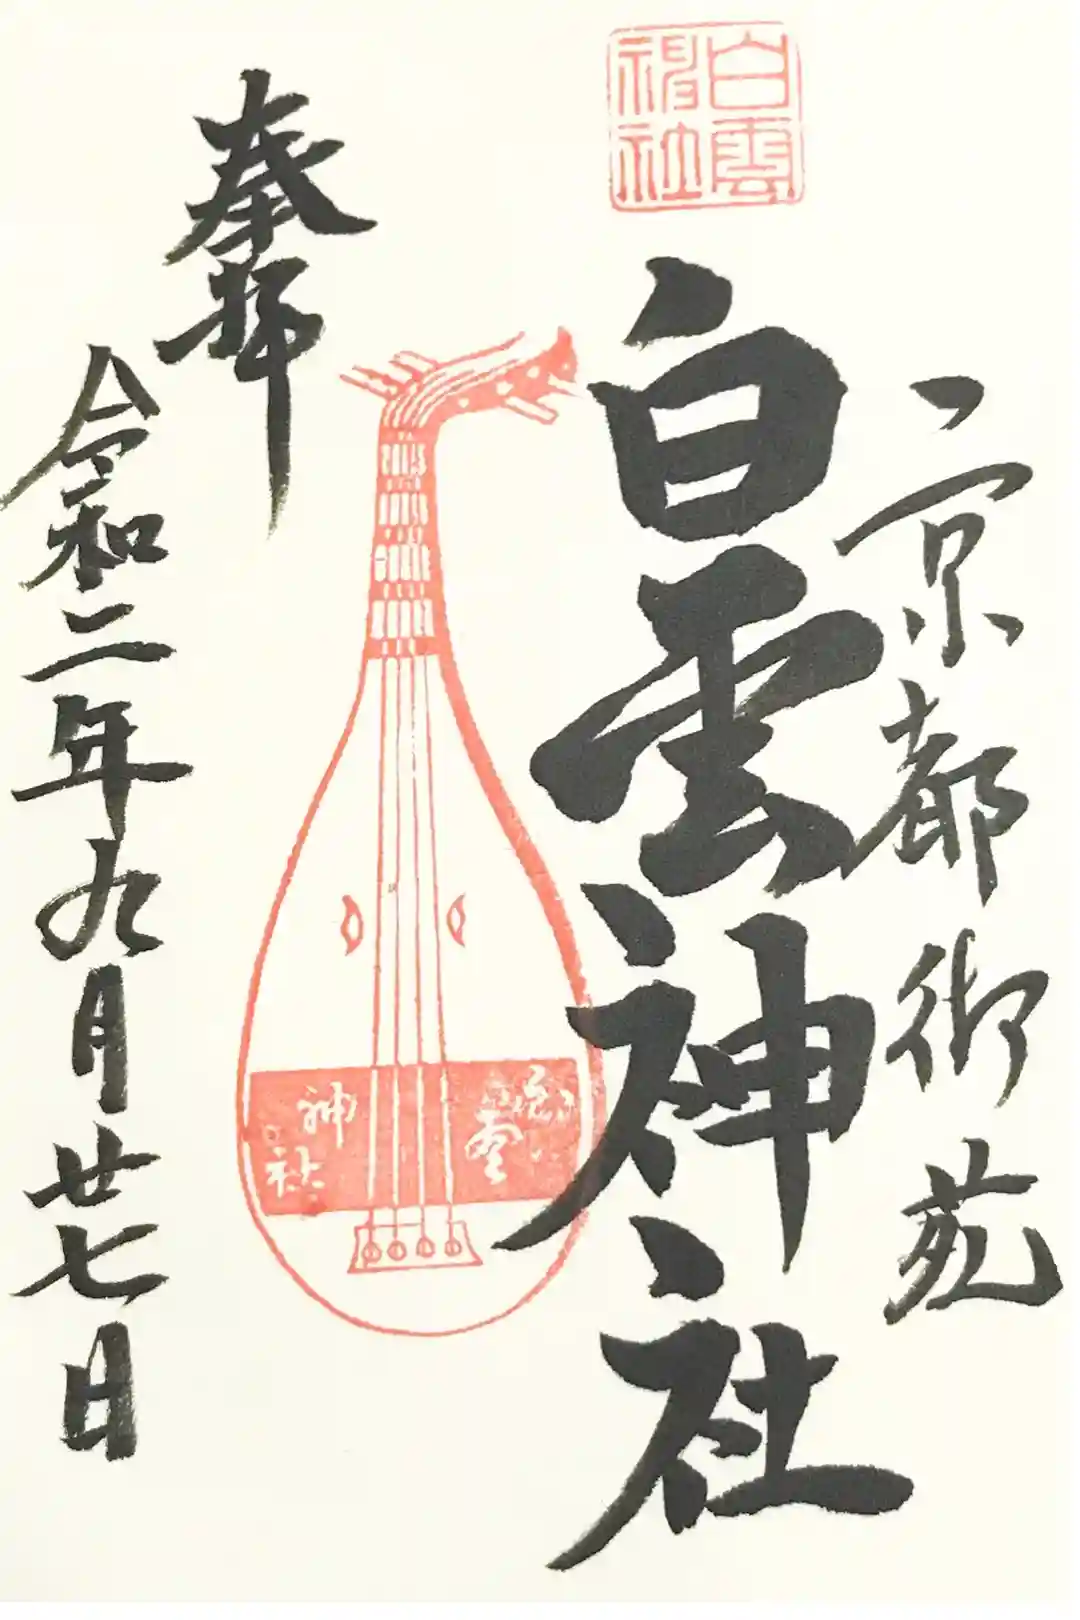 京都御苑
白雲神社
白雲
神社
奉拝
令和二年九月廿七日
神社